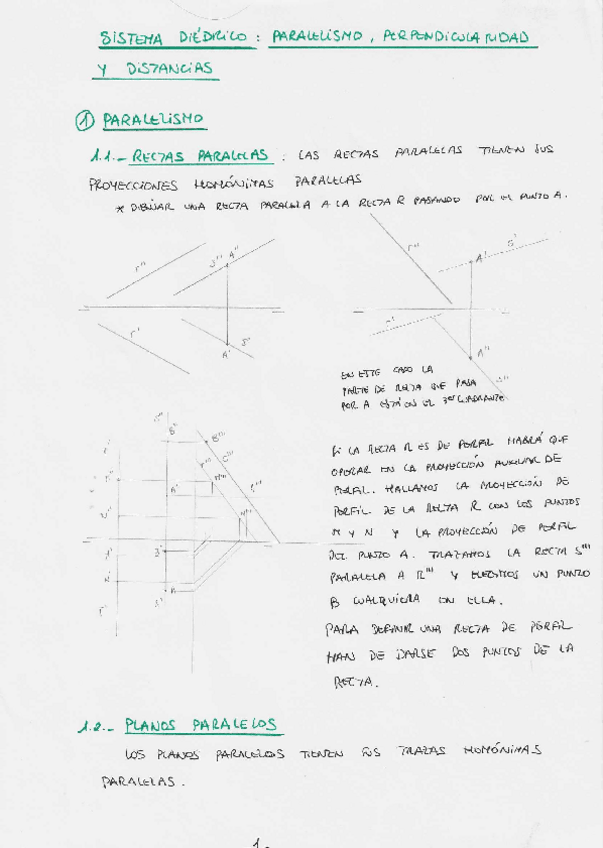 SISTEMA DIÉDRICO : PARALELISMO, PERPENDICULARIDAD
Y DISTANCIAS
① PARALELISMO
1.1.- RECTAS PARALELAS : LAS RECTAS PARALELAS TIENEN SUS
PROYECCIONES HOMÓNIMAS PARALELAS
* DIBUJAR UNA RECTA PARALELA A LA RECTA R PASANDO POR EL PUNTO A.
r'' S'' A''
r' A' S'
r'' A' S'
r' A'' S''
EN ESTE CASO LA
PARTE DE RECTA QUE PASA
POR A ESTÁ EN EL 3er CUADRANTE
B'' B'''
A'
SI LA RECTA R ES DE PERFIL HABRÁ QUE
OPERAR EN LA PROYECCIÓN AUXILIAR DE
PERFIL. HALLAMOS LA PROYECCIÓN DE
PERFIL DE LA RECTA R CON LOS PUNTOS
M Y N Y LA PROYECCIÓN DE PERFIL
DEL PUNTO A. TRAZAMOS LA RECTA S'''
PARALELA A R''' Y ELEGIMOS UN PUNTO
B CUALQUIERA EN ELLA.
PARA DEFINIR UNA RECTA DE PERFIL
HAN DE DARSE DOS PUNTOS DE LA
RECTA.
1.2.- PLANOS PARALELOS
LOS PLANOS PARALELOS TIENEN SUS TRAZAS HOMÓNIMAS
PARALELAS.
1.